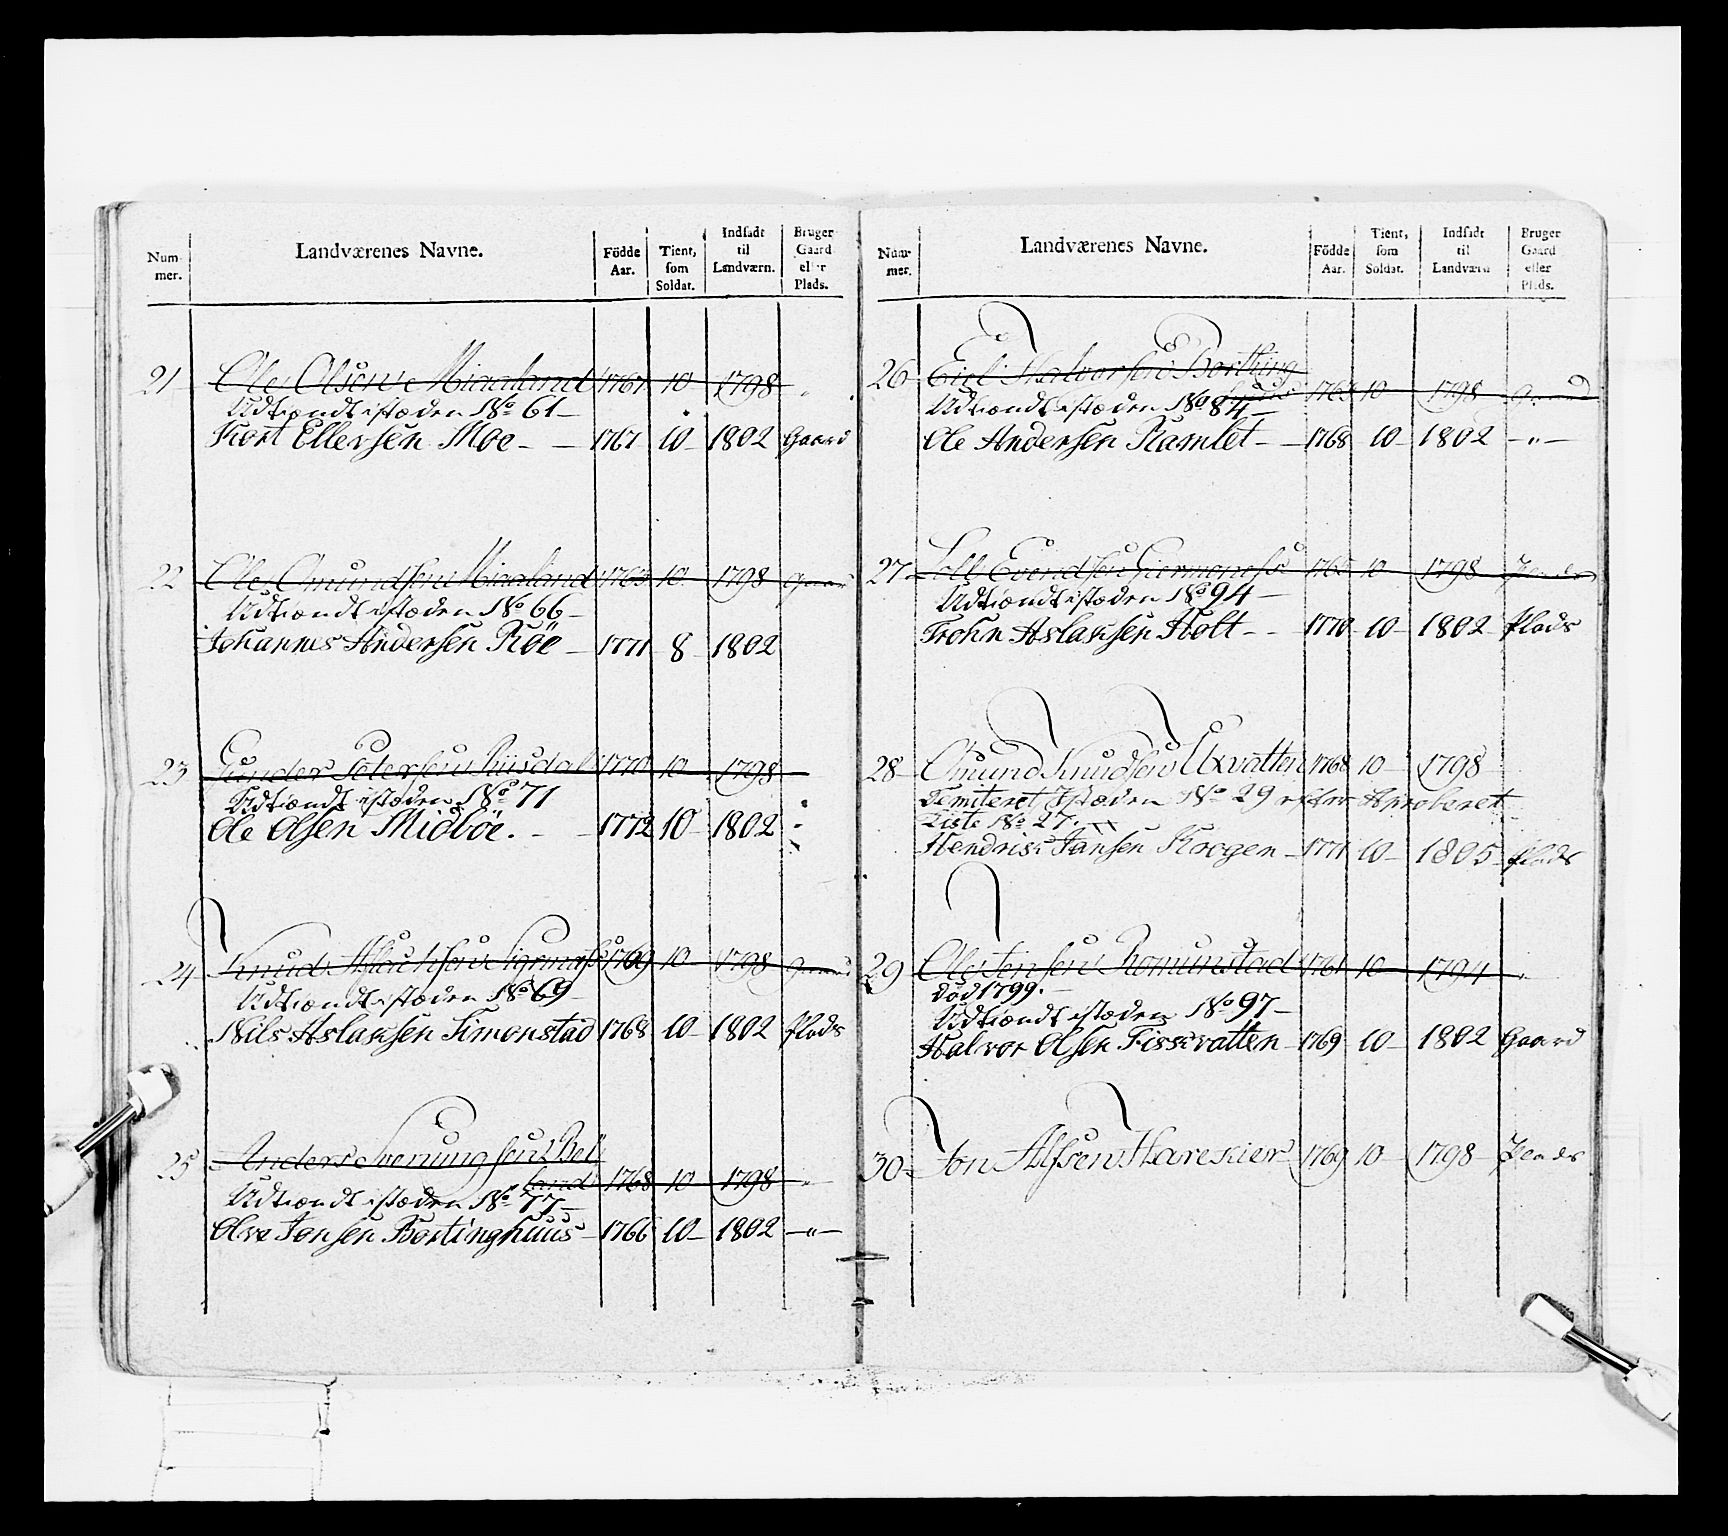 Num-mer. Landværenes Navne. Födde Aar. Tient, som Soldat. Indsadt til Landværn. Bruger Gaard eller Plads.
21 Ole Olsen Miaaland 1761 10 1798 "
Udtiendt istæden No 61 –
Kort Ellersen Moe – – 1767 10 – 1802 Gaard
22 Ole Omundsen Miaaland 1763 10 1798 Gaard
Udtiendt istæden No 66 –
Johannes Andersen Röe – 1771 8 1802
23 Gunder Petersen 1770 10 1798
Udtiendt istæden No 71
Ole Olsen Midböe. – – 1772 10 – 1802 "
24 Knud 1769 10 1798 Gaard
Udtiendt istæden No 69
Nils Aslaksen Simonstad 1768 10 – 1802 Plads
25 Anders Svenungsen Bel
land 1768 10 1798 "
Udtiendt istæden No 77 –
Olve Jensen Bortinghuus – 1766 10 – 1802 – " –
Num-mer. Landværenes Navne. Födde Aar. Tient, som Soldat. Indsadt til Landværn Bruger Gaard eller Plads.
26 Eiel Halvorsen Borthing
huus 1763 10 1798 Gaard
Udtiendt istæden No 84 –
Ole Andersen Ramlet – – 1768 10 – 1802 – " –
27 1765 10 1798 Plads
Udtiendt istæden No 94 –
Trohn Aslaksen Holt – – 1770 – 10 – 1802 Plads
28 Omund Knudsen Uxvatten 1768 10 – 1798
Demiteret Istæden No 29 efter Aproberet
Liste No 27.
Hendrik Jansen Krogen – 1771 10 – 1805 Plads
29 Ole Jensen Romunstad 1761 10 – 1794 "
död 1799. –
Udtiendt istæden No 97 –
Halvor Olsen Fisskvatten – 1769 10 – 1802 Gaard
30 – Jon Alfsen Hareskier 1769 10 – 1798 Plads